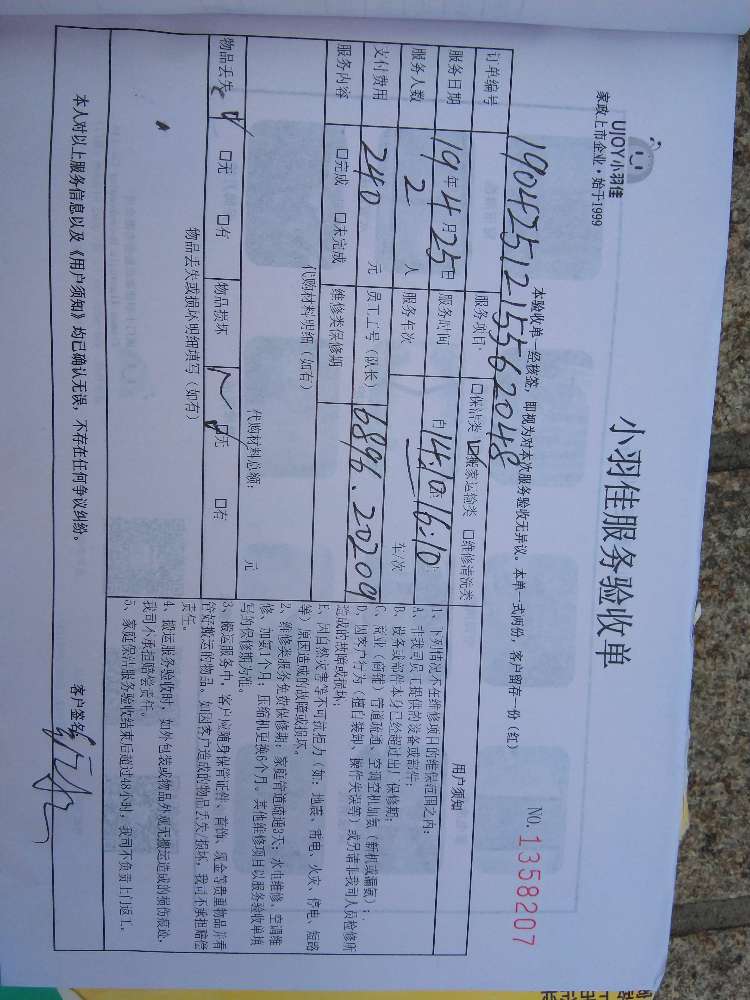 UJOY小羽佳
家政上市企业·始于1999
小羽佳服务验收单
NO. 1358207
本验收单一经核签，即视为对本次服务验收无异议。本单一式两份，客户留存一份（红）
订单编号 19042512155562048
服务项目: □保洁类 ☑搬家运输类 □维修清洗类
服务日期 19年4月25日 服务时间 自14:10 16:10
服务人数 2 人 服务车次 车/次
支付费用 240 元 员工工号（队长） 6896.20209
服务内容 □完成 □未完成 维修类保修期
代购材料明细（如有）
代购材料总额: 元
物品丢失 □无 □有 物品损坏 □无 □有
物品丢失或损坏明细填写（如有）
用户须知
1、下列情况不在维修项目的维保范围之内:
A、非我司员工提供的设备或部件;
B、设备或部件本身已经超过出厂保修期;
C、商业（商铺）管道疏通、空调空机加氨（新机或漏氨）;
D、因客户行为（擅自装卸、操作失误等）或另请非我司人员检修所
造成的故障或损坏;
E、因自然灾害等不可抗拒力（如: 地震、雷电、火灾、停电、短路
等）原因造成的故障或损坏。
2、维修类服务免费保修期: 家庭管道疏通3天; 水电维修、空调维
修、加氨1个月, 压缩机更换6个月。其他维修项目以服务验收单填
写的保修期为准。
3、搬运服务中，客户应随身保管证件、首饰、现金等贵重物品并看
管好搬运的物品。如因客户造成的物品丢失/损坏，我司不承担赔偿
责任。
4、搬运服务验收时，如外包装或物品外观无搬运造成的损伤痕迹,
我司不承担赔偿责任。
5、家庭保洁服务验收结束后超过48小时，我司不负责上门返工。
本人对以上服务信息以及《用户须知》均已确认无误，不存在任何争议纠纷。
客户签名: